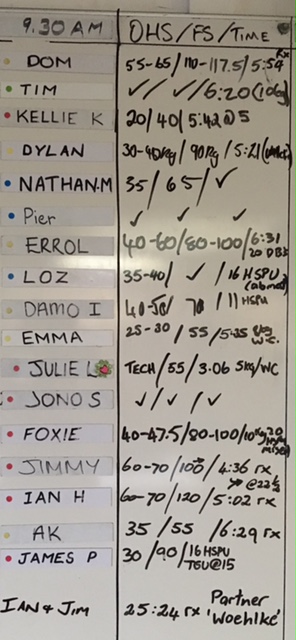 9.30 AM OHS/FS/TIME
DOM 55-65/110-117.5/5:54 Rx
TIM ✓/ ✓/6:20
KELLIE K 20/40/5:42@5
DYLAN 30-40kg/90kg/5:21
NATHAN.M 35/65/✓
Pier ✓ ✓ ✓
ERROL 40-60/80-100/6:31
20 DB's
LOZ 35-40/ ✓ /16 HSPU
(abmat)
DAMO I 40-50/ 70 /11 HSPU
EMMA 25-30/55/5:35
JULIE L TECH/55/3.06 5kg/WC
JONO S ✓/✓/✓
FOXIE 40-47.5/80-100/
JIMMY 60-70/100/4:36 rx
IAN H 60-70/120/5:02 rx
AK 35/55/6:29 rx
JAMES P 30/90/16 HSPU
TGU@15
IAN & JIM 25:24 rx Partner
'Woehlke'